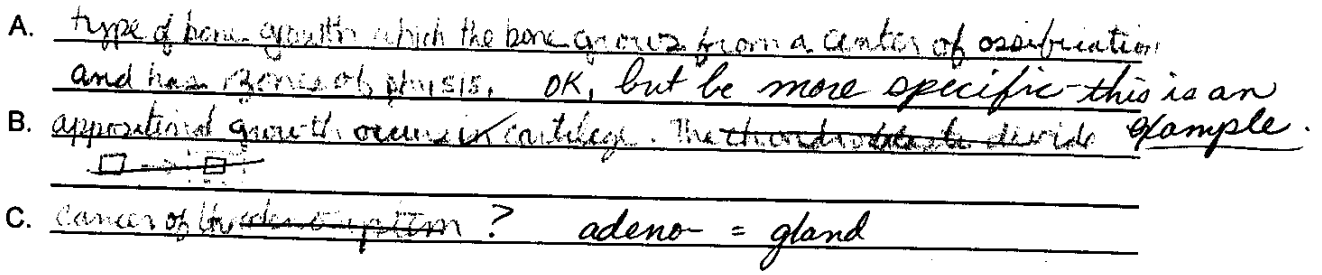 A. type of bone growth which the bone grows from a center of ossification
and has zones of physis. OK, but be more specific - this is an
B. appositional growth occurs in cartilage. The chondroblasts divide example.
C. cancer of the adeno system ? adeno- = gland